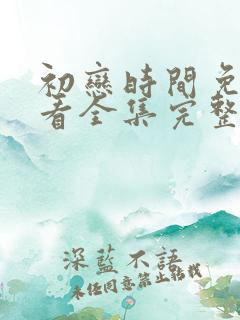 初戀時間免
看全集完整
深藍不語
未经同意禁止转载